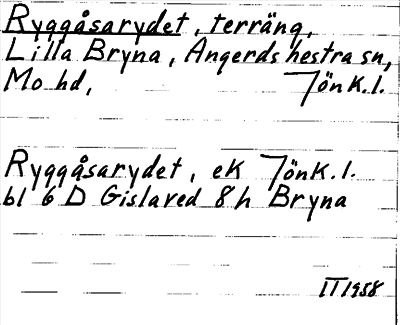 Ryggåsarydet, terräng,
Lilla Bryna, Ångerdshestra sn,
Mo hd, Jönk.l.
Ryggåsarydet, ek Jönk.l.
bl 6 D Gislaved 8 h Bryna
II 1958